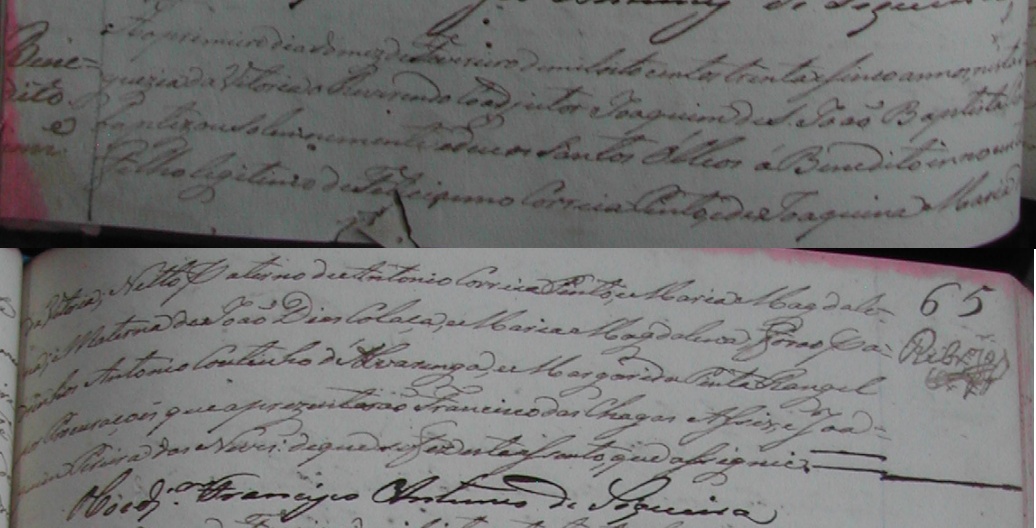 Antunes de Siqueira
Bene= Ao primeiro dia do mez de Fevereiro de mil oito centos trenta e sinco annos, nesta
dito guezia da Vitoria o Reverendo Coadjutor Joaquim de S. João Baptista
e Baptizou solemnemente e deu os Santos Olleos a Benedito innocente
Filho legitimo de Feliciano Correia Pinto, e de Joaquina Maria
da Vitoria; Netto Paterno de Antonio Correia Pinto, e Maria Magdale-
na; e Materna de João Dias Colaça, e Maria Magdalena; forão Pa-
drinhos Antonio Coutinho de Alvarenga, e Margarida Pinta Rangel
por Procuraçoēs que aprezentarão Francisco das Chagas Assiz, e Joa-
quim Pereira das Neves: de que diz fiz este assento, que assignei.
O Coadj.or Francisco Antunes de Siqueira
65
Rib.ro